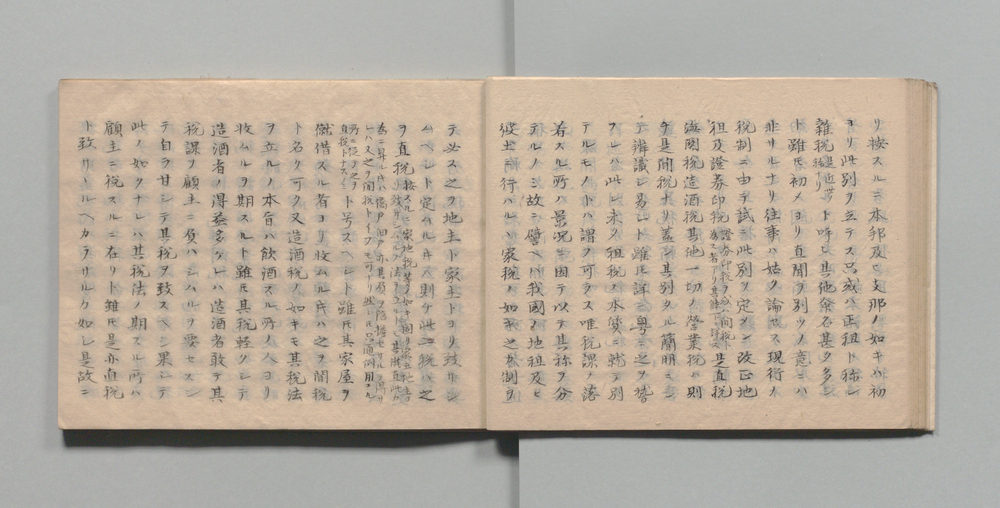 リ按スルニ本邦及ヒ支那ノ如キハ初
ヨリ此別ヲ立テス只或ハ正租ト称シ
雑税ト呼ヒ其他衆名甚タ多シ
ト雖モ初メヨリ直間ヲ別ツノ意ニハ
非サルナリ往事ハ姑ク論セス現行ノ
税制ニ由テ試ニ此別ヲ定メン改正地
租及證券印税 是直税
海関税造酒税其他一切ノ営業税ハ則
チ是間税ナリ蓋シ其別タル簡明ニシ
テ辨識シ易シト雖モ詳ニ粤ニ之ヲ
フレハ此レ未タ租税ノ本質ニ就テ別
テルモノトハ謂フ可ラス唯税課ノ落
着スル所ノ景況ニ因テ以テ其称ヲ分
テルノミ故ニ譬ヘハ我國ノ地租及ヒ
彼土ニ行ハルヽ家税ノ如キ之ヲ制
テ必ス之ヲ地主ト家主トヨリ致サシ
ムヘシト定ムル片ハ則チ此二税ハ之
ヲ直税
ト号スヘシト雖モ其家屋ヲ
僦借スル者ヨリ收ムル片ハ之ヲ間税
ト名ク可ク又造酒税ノ如キモ其税法
ヲ立ルノ本旨ハ飲酒スル所ノ人ヨリ
收ムルヲ期スルト雖モ其税軽クシテ
造酒者ノ得益多ケレハ造酒者敢テ其
税課ヲ顧主ニ負ハシムルヲ要セスシ
テ自ラ甘シテ其税ヲ致スヘシ果シテ
此ノ如クナレハ其税法ノ期スル所ハ
顧主ニ税スルニ在リト雖モ是亦直税
ト致サルヘカラサルカ如シ是故ニ